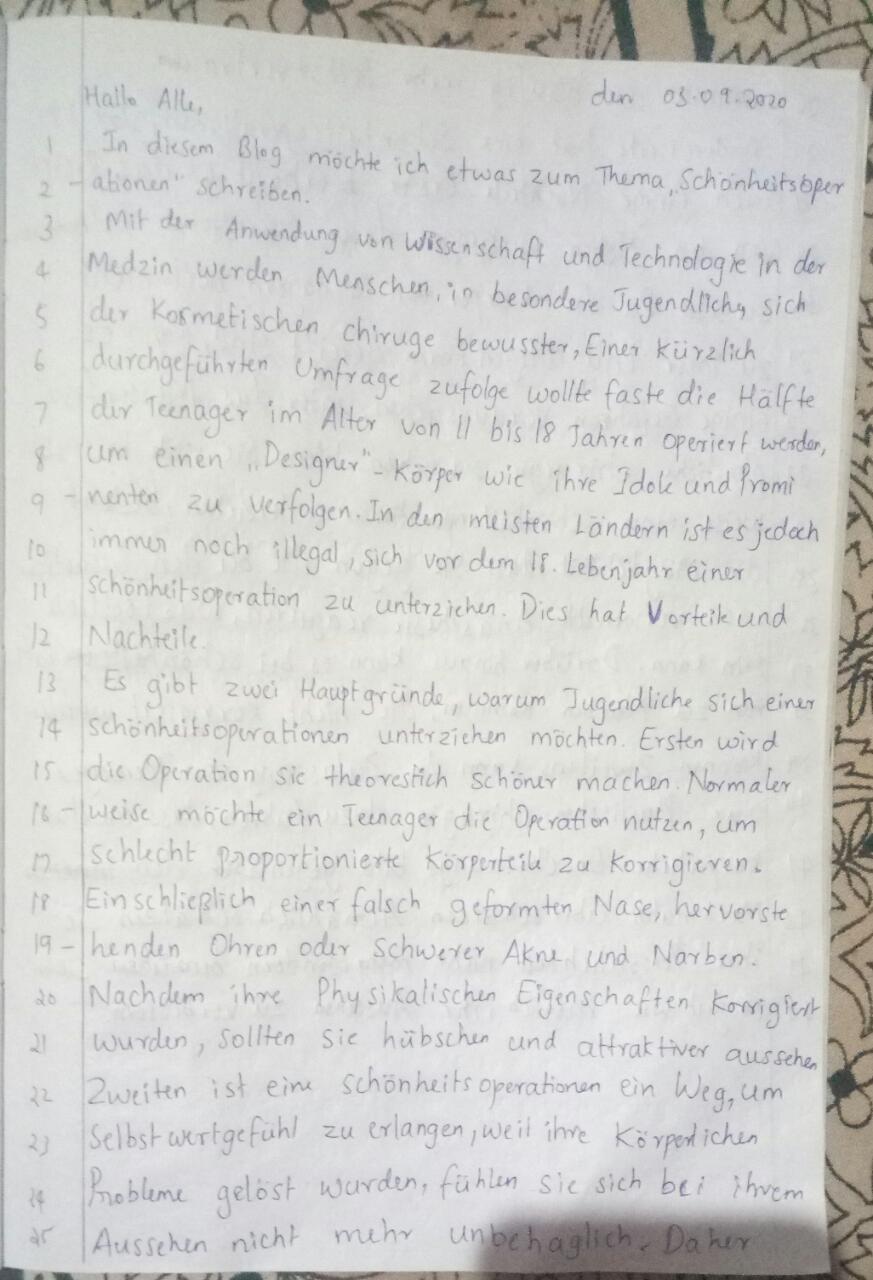 Hallo Alle, den 03.09.2020
1 In diesem Blog möchte ich etwas zum Thema „Schönheitsoper
2 - ationen" schreiben.
3 Mit der Anwendung von Wissenschaft und Technologie in der
4 Medzin werden Menschen, in besondere Jugendlich, sich
5 der Kosmetischen chiruge bewusster, Einer kürzlich
6 durchgeführten Umfrage zufolge wollte faste die Hälfte
7 der Teenager im Alter von 11 bis 18 Jahren operiert werden,
8 um einen „Designer"-Körper wie ihre Idole und Promi
9 - nenten zu verfolgen. In den meisten Ländern ist es jedoch
10 immer noch illegal, sich vor dem 18. Lebenjahr einer
11 schönheitsoperation zu unterziehen. Dies hat Vorteile und
12 Nachteile.
13 Es gibt zwei Hauptgründe, warum Jugendliche sich einer
14 schönheitsoperationen unterziehen möchten. Ersten wird
15 die Operation sie theorestich schöner machen. Normaler
16 - weise möchte ein Teenager die Operation nutzen, um
17 schlecht proportionierte Körperteile zu korrigieren.
18 Einschließlich einer falsch geformten Nase, hervorste
19 - henden Ohren oder schwerer Akne und Narben.
20 Nachdem ihre Physikalischen Eigenschaften korrigiert
21 wurden, sollten sie hübschen und attraktiver aussehen
22 Zweiten ist eine schönheitsoperationen ein Weg, um
23 Selbstwertgefühl zu erlangen, weil ihre Körperlichen
24 Probleme gelöst wurden, fühlen sie sich bei ihrem
25 Aussehen nicht mehr unbehaglich. Daher